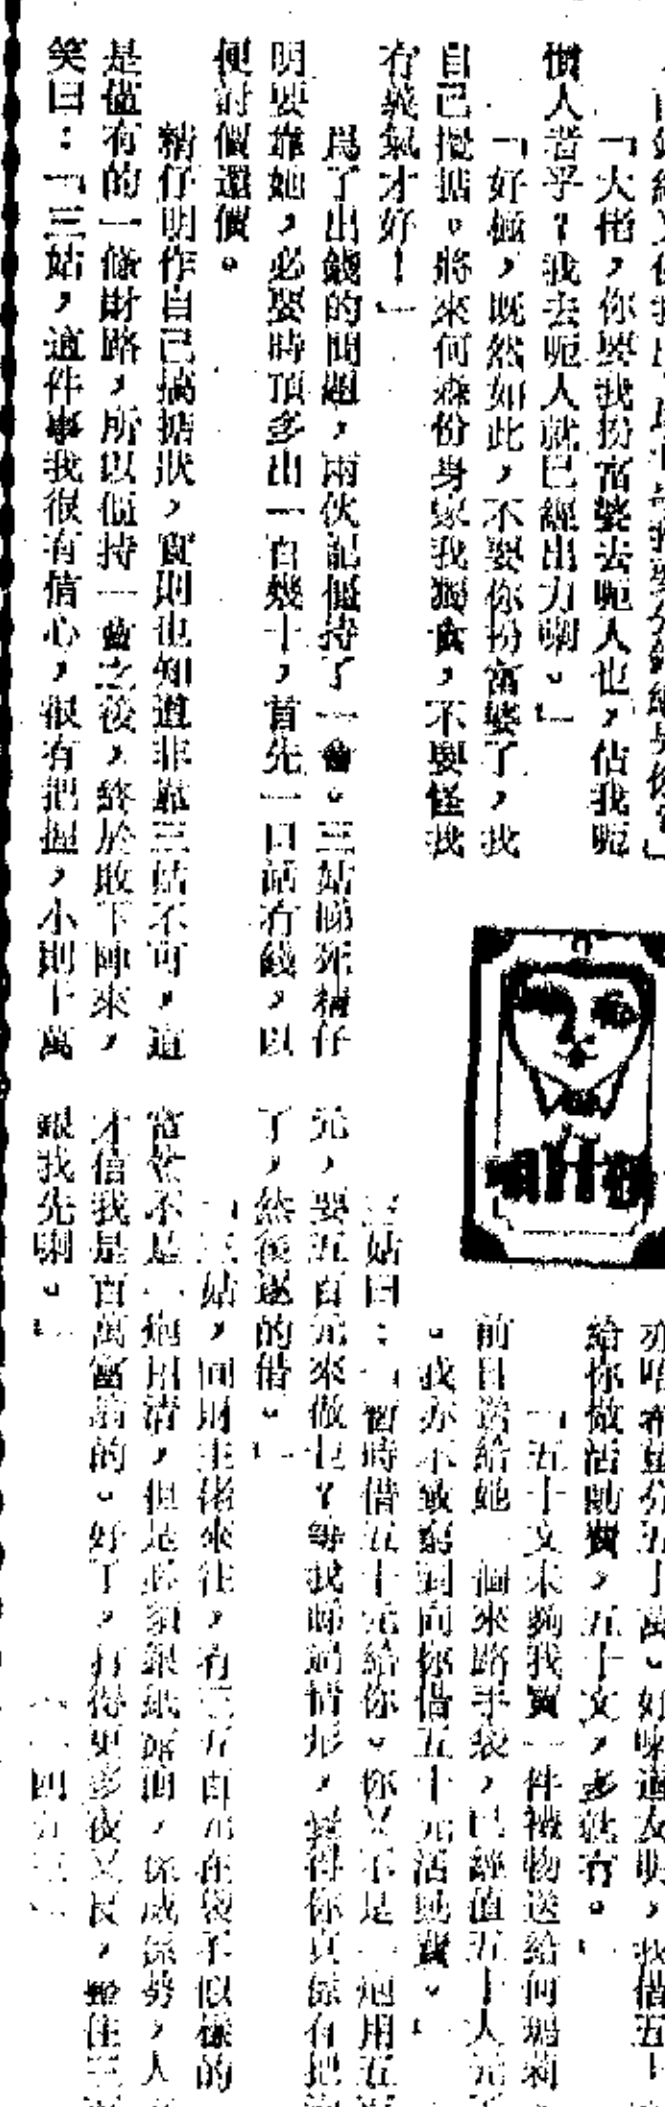 「大佬，你要我扮富婆去呃人也，佔我呃
慣人者乎？我去呃人就已經出力喇。」
「好極，既然如此，不要你扮富婆了，我
自己攪掂。將來何森份身家我獨食，不要怪我
冇義氣才好！」
爲了出錢的問題，兩伙記僵持了一會。三姑睇死精仔
明要靠她，必要時頂多出一百幾十，首先一口話冇錢，以
便討價還價。
精仔明作自己搞掂狀，實則也知道非靠三姑不可，這
是僅有的一條財路，所以僵持一會之後，終於敗下陣來，
笑曰：「三姑，這件事我很有信心，很有把握，小則十萬
給你做活動費，五十文，多就冇。」
「五十文未夠我買一件禮物送給何瑪莉，
前日送給她一個來路手袋，已經值五十人元
。我亦不致窮到向你借五十元活動費。」
三姑曰：「暫時借五十元給你。你又不是一炮用五
元，要五百元來做乜？等我睇過情形，覺得你真係有把
了，然後逐的借。」
「三姑，同財主佬來往，有三五百元在袋不似樣的
當然不是一炮用清，但是必須銀紙傍面，係威係勢，人
才信我是百萬富翁的。好了，打得更多夜又長，
銀我先喇。」
（一四九三）